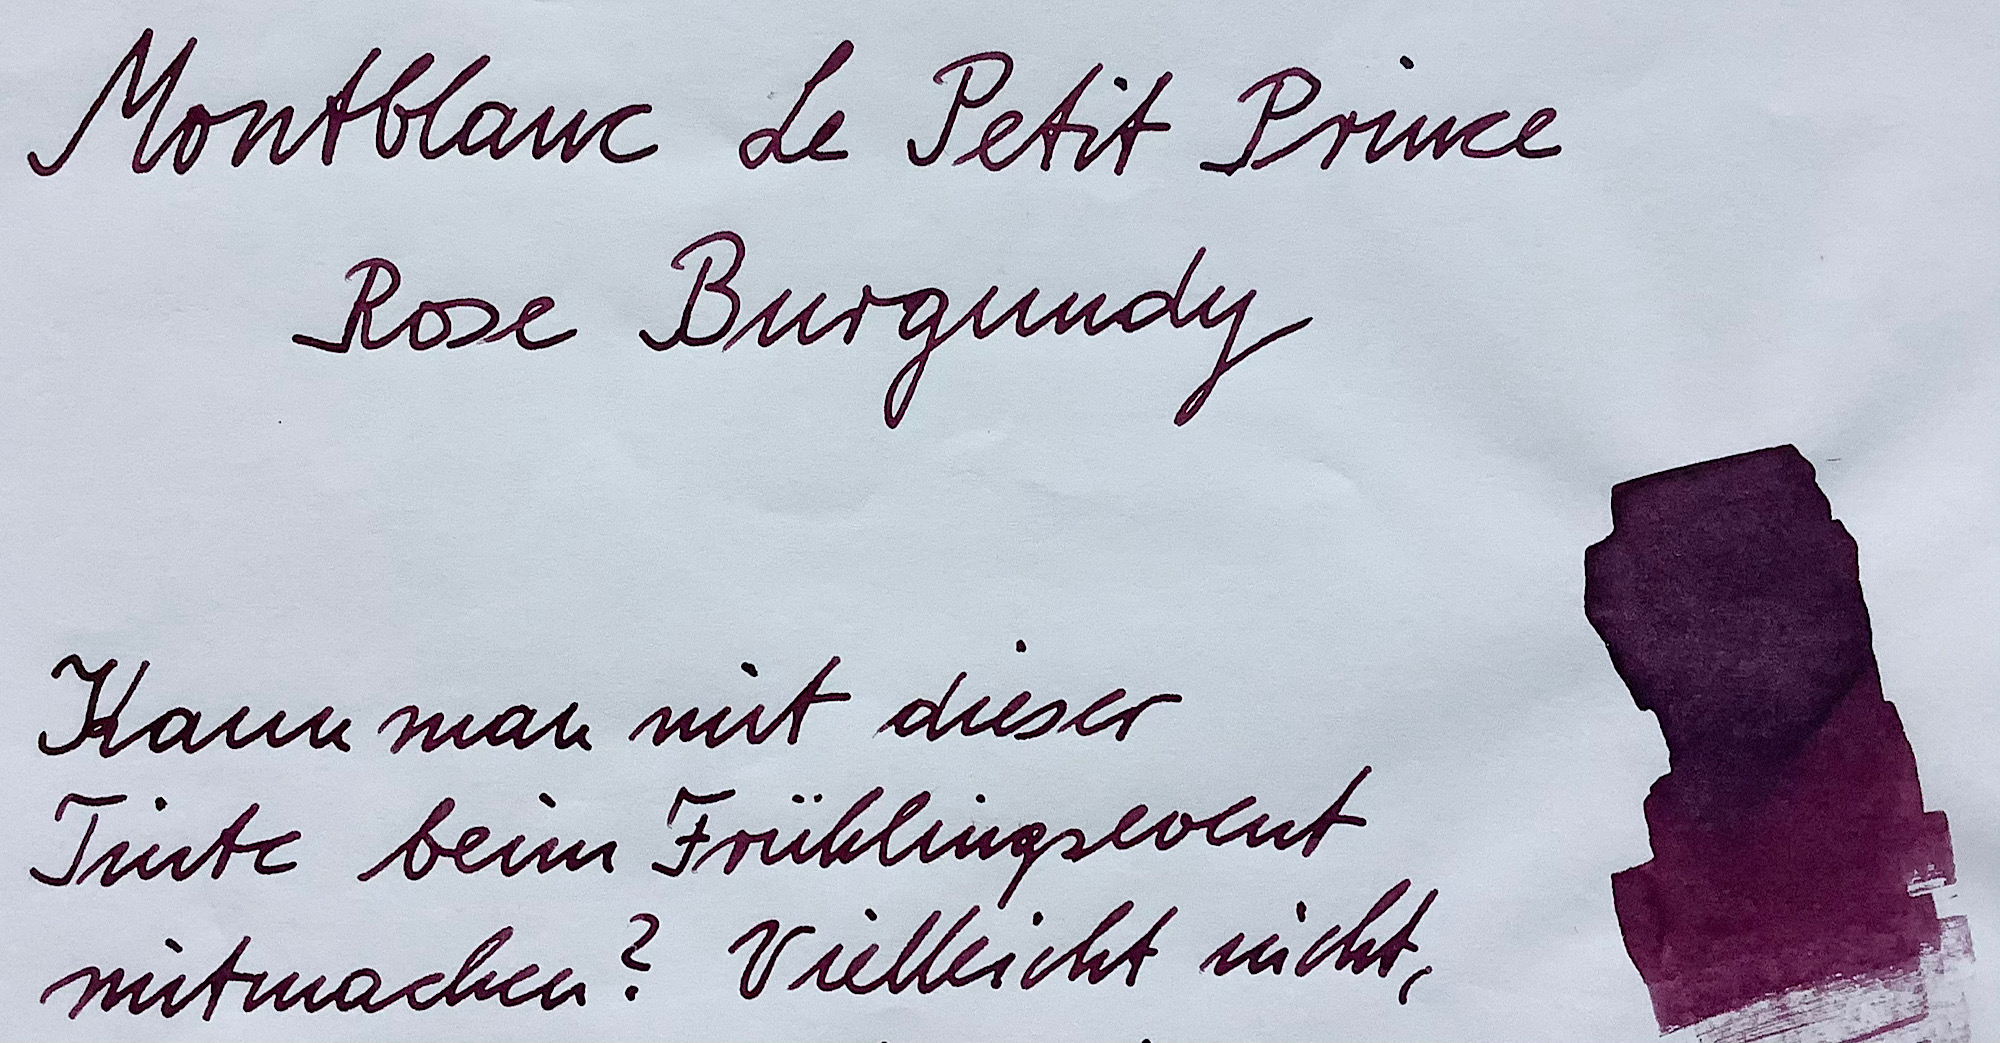 Montblanc Le Petit Prince
Rose Burgundy
Kann man mit dieser
Tinte beim Frühlingsevent
mitmachen? Vielleicht nicht,